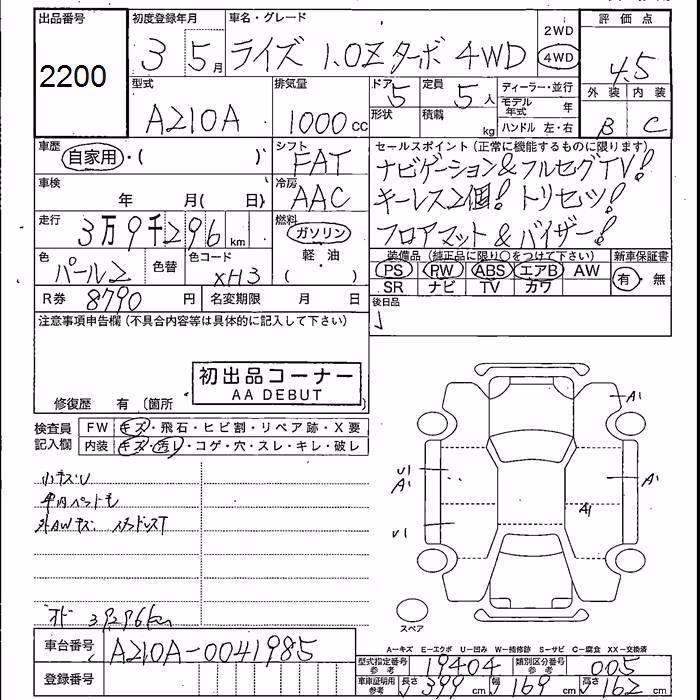 出品番号
2200
初度登録年月
3 5月
車名・グレード
ライズ 1.0Z ターボ 4WD
2WD
4WD
評価点
4.5
外装 内装
B C
型式
A210A
排気量
1000cc
ドア
5
形状
定員
5人
積載
kg
ディーラー・並行
モデル年式 年
ハンドル 左・右
車歴
自家用・( )
シフト
FAT
車検
年 月( 日)
冷房
AAC
セールスポイント(正常に機能するものに限ります)
ナビゲーション&フルセグTV!
キーレス2個! トリセツ!
フロアマット&バイザー!
走行
3万9千296km
燃料
ガソリン
軽・油
( )
色
パール2
色替
色コード
XH3
装備品(純正品に限り○をつけて下さい)
PS PW ABS エアB AW
SR ナビ TV カワ
新車保証書
有・無
R券 8790円
名変期限 月 日
後日品
注意事項申告欄(不具合内容等は具体的に記入して下さい)
初出品コーナー
AA DEBUT
修復歴 有 〔箇所
検査員
記入欄
FW キズ・飛石・ヒビ割・リペア跡・X要
内装 キズ・汚レ・コゲ・穴・スレ・キレ・破レ
小キズU
車内ペット毛
外AWキズ スタッドレスT
オド 39296km
A1
U1
A1
A1
A1
U1
スペア
A-キズ E-エクボ U-凹み W-補修跡 S-サビ C-腐食 XX-交換済
車台番号
A210A-0041985
登録番号
型式指定番号
参考
19404
類別区分番号
参考
005
車庫証明用
参考
長さ 399cm
幅 169cm
高さ 162cm